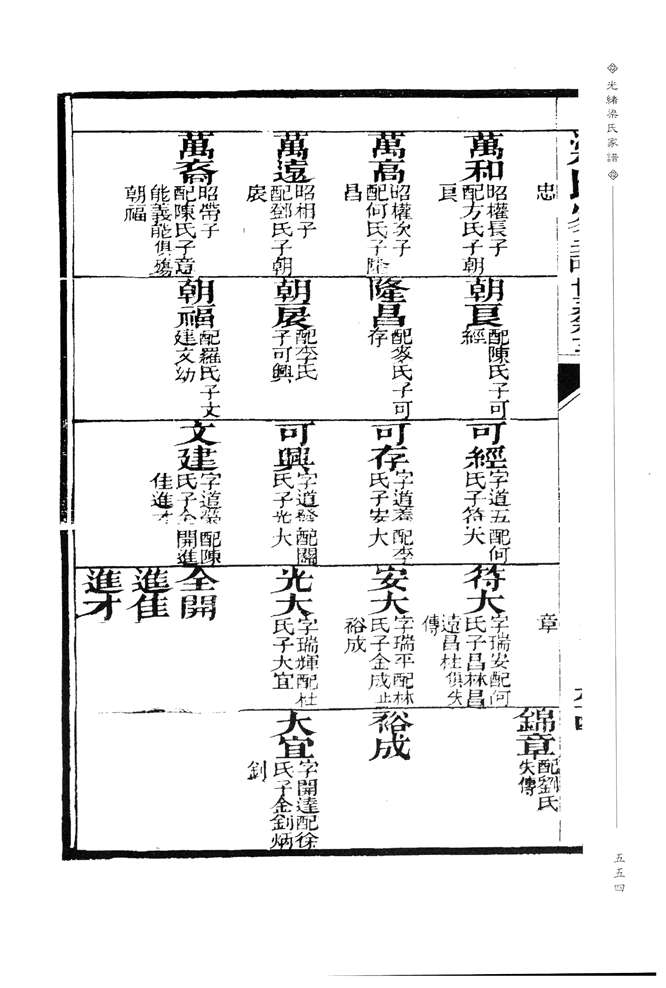 光緒梁氏家譜
五五四
忠
萬和
昭權長子
配方氏子朝
良
萬高
昭權次子
配何氏子隆
昌
萬遠
昭相子
配鄧氏子朝
展
萬裔
昭帶子
配陳氏子章
能義能俱殤
朝福
朝良
配陳氏子可
經
隆昌
配麥氏子可
存
朝展
配李氏
子可興
朝福
配羅氏子文
建文幼
可經
字道五配何
氏子符大
可存
字道養配李
氏子安大
可興
字道發配關
氏子光大
文建
配陳
氏子全開進
佳進才
章
符大
字瑞安配何
氏子昌林昌
遠昌杜俱失
傳
安大
字瑞平配林
氏子金成
裕成
光大
字瑞輝配杜
氏子大宜
全開
進佳
進才
錦章
配劉氏
失傳
裕成
大宜
字開達配徐
氏子金釗炳
釗